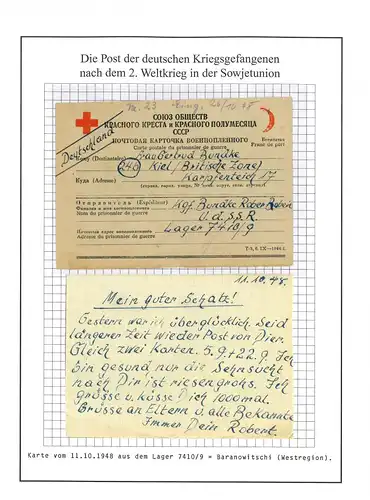 Die Post der deutschen Kriegsgefangenen
nach dem 2. Weltkrieg in der Sowjetunion
Deutschland
СОЮЗ ОБЩЕСТВ
КРАСНОГО КРЕСТА и КРАСНОГО ПОЛУМЕСЯЦА
СССР
ПОЧТОВАЯ КАРТОЧКА ВОЕННОПЛЕННОГО
Carte postale du prisonnier de guerre
Бесплатно
Franc de port
Кому (Destinataire) Frau Gertrud Bundke
24b Kiel (Britische Zone)
Куда (Adresse) Karpfenteich 17
Отправитель (Expéditeur) Kgf. Bundke Robert
Фамилия и имя военнопленного
Nom du prisonnier de guerre
U.d.S.S.R.
Почтовый адрес военнопленного
Adresse du prisonnier de guerre
Lager 7410/9
11.10.48.
Mein guter Schatz!
Gestern war ich überglücklich. Seid
längerer Zeit wieder Post von Dier.
Gleich zwei Karten. 5.9.+22.9. Ich
bin gesund nur die Sehnsucht
nach Dir ist riesengrohs. Ich
grüsse u. küsse Dich 1000mal.
Grüsse an Eltern u. alle Bekannte
Immer Dein Robert.
Karte vom 11.10.1948 aus dem Lager 7410/9 = Baranowitschi (Westregion).